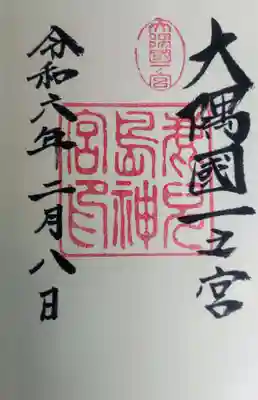 大隅國一之宮
大隅國一之宮
鹿兒
島神
宮印
令和六年二月八日